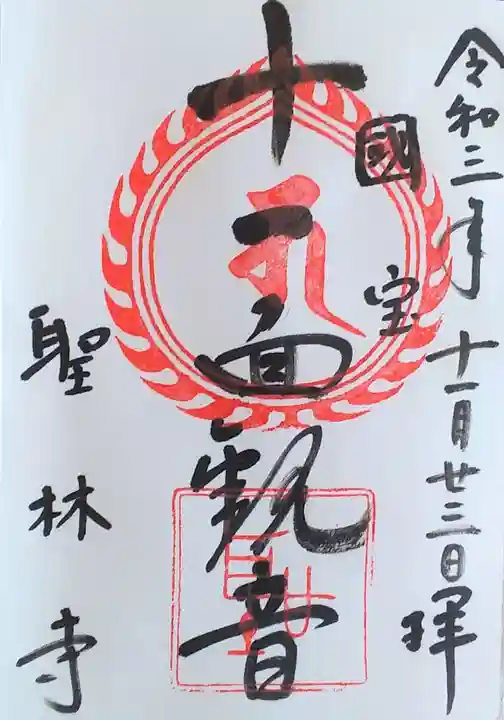 令和三年十一月廿三日拝
國宝
十一面観音
聖林寺